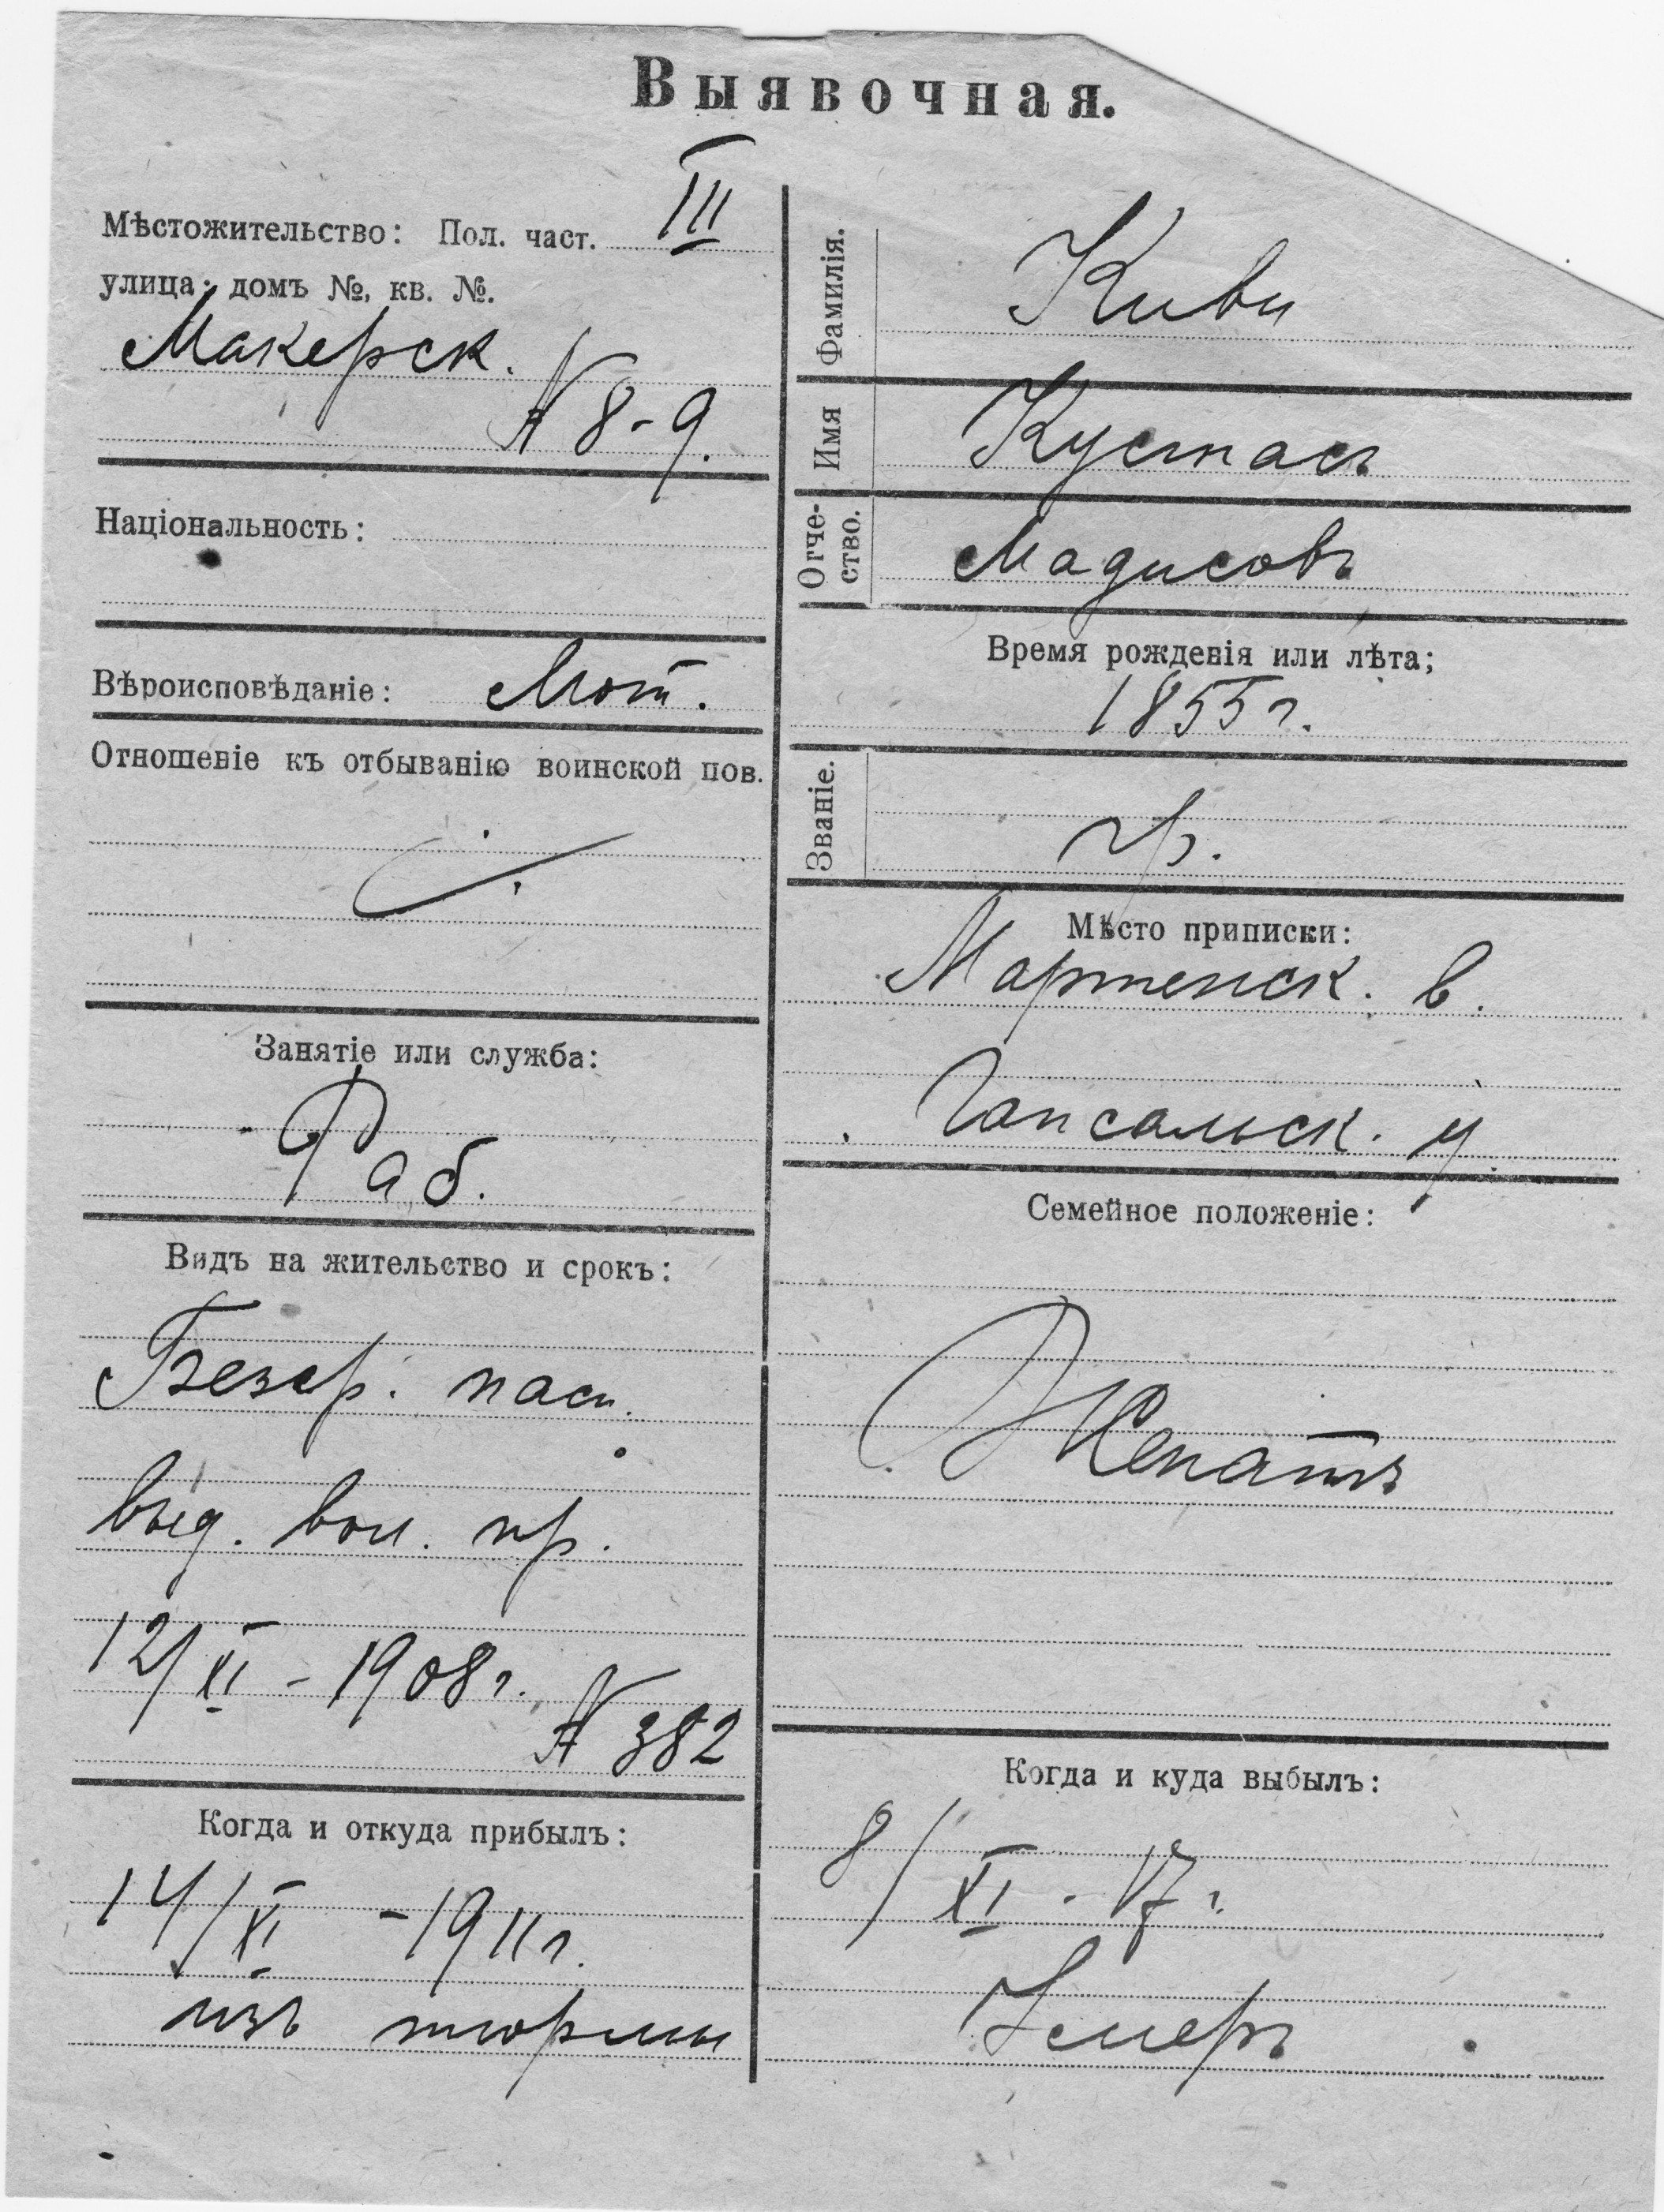 Выявочная.
Мѣстожительство: Пол. част. III
улица; домъ №, кв. №.
Макерск.
№ 8-9.
Національность:
Вѣроисповѣданіе: Лют.
Отношеніе къ отбыванію воинской пов.
Занятіе или служба:
Раб.
Видъ на жительство и срокъ:
Безср. пасп.
выд. вол. пр.
12/XI - 1908 г.
№ 382
Когда и откуда прибылъ:
14/XI - 1911 г.
изъ тюрмы
Фамилія. Киви
Имя Кустасъ
Отче-
ство. Мадисовъ
Время рожденія или лѣта;
1855 г.
Званіе. кр.
Мѣсто приписки:
Мартенск. в.
Гапсальск. у.
Семейное положеніе:
Женатъ
Когда и куда выбылъ:
8/XI - 17 г.
Умеръ